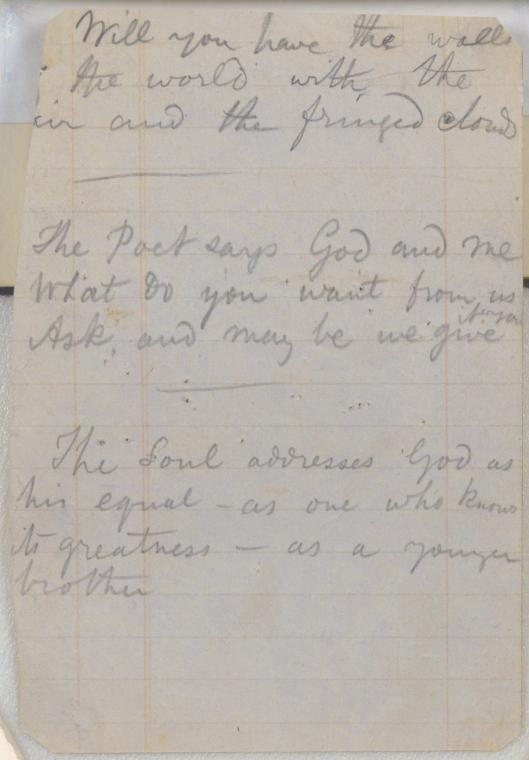 Will you have the walls
the world with the
air and the fringed clouds
The Poet says God and me
What do you want from us
Ask, and may be we give it to you
The Soul addresses God as
his equal — as one who knows
its greatness — as a younger
brother